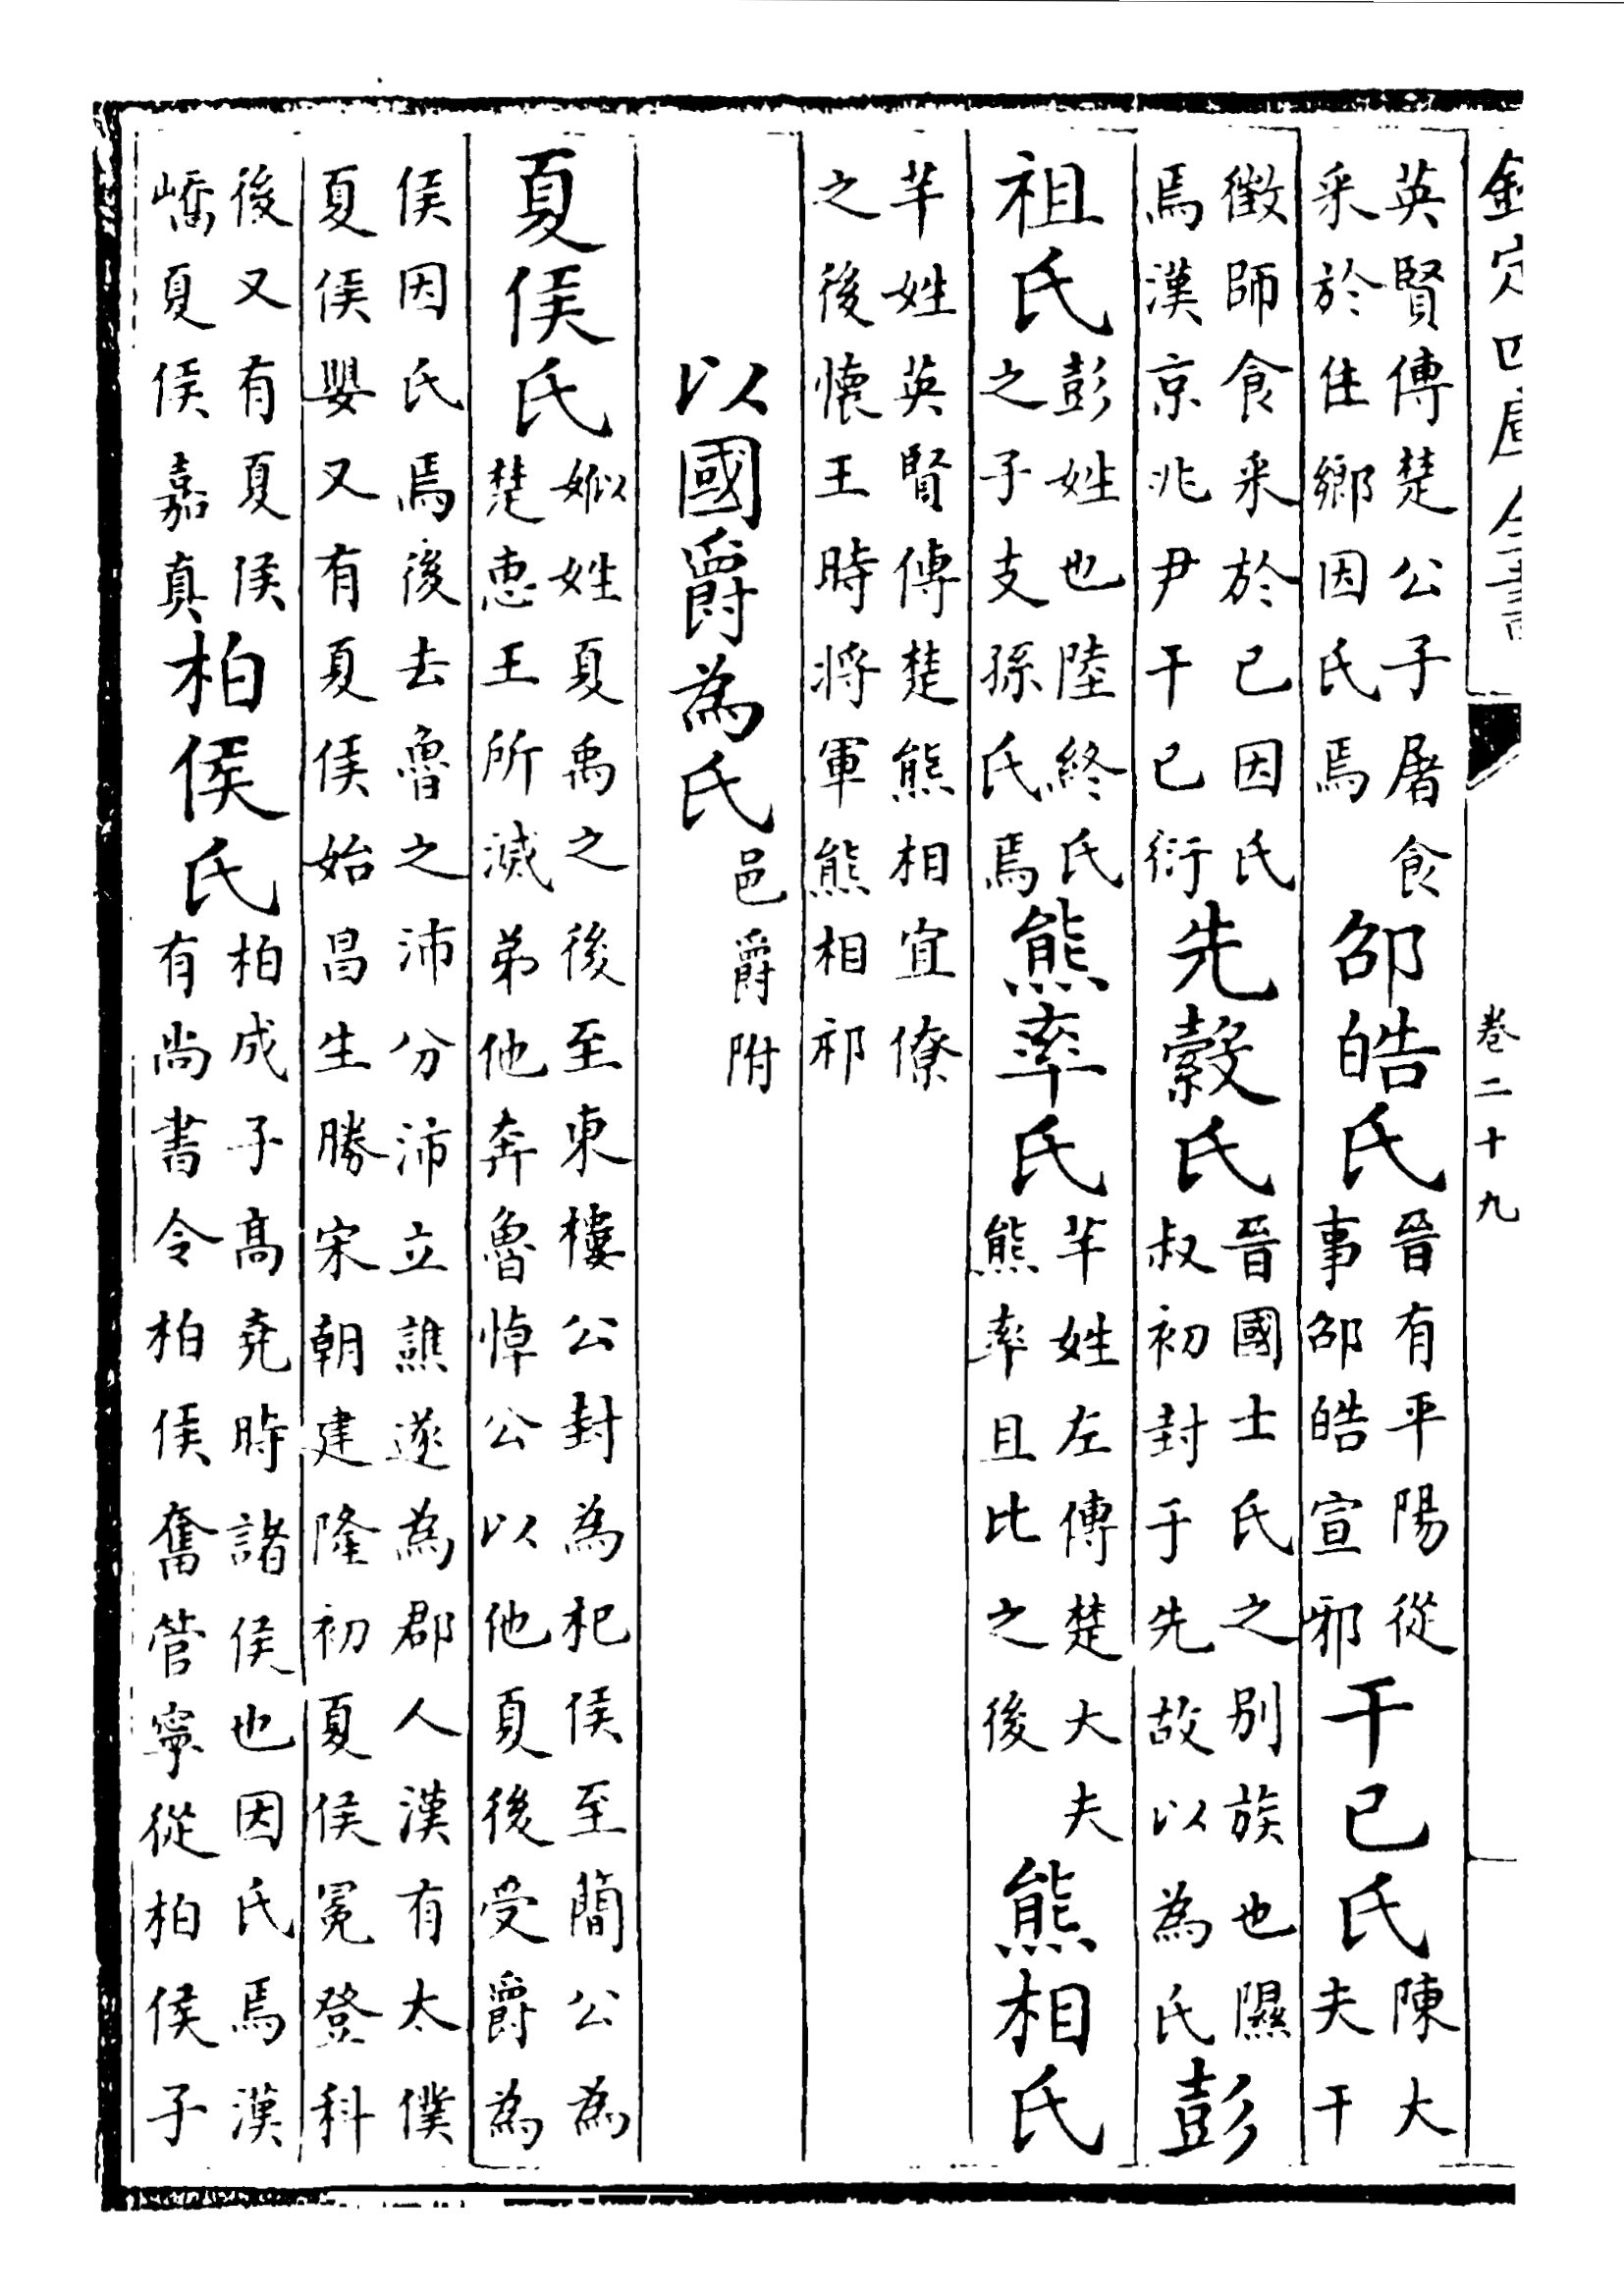 欽定四庫全書
卷二十九
英賢傳楚公子屠食
采於住鄉因氏焉
卲皓氏
晉有平陽從
事卲皓宣邪
干已氏
陳大
夫干
徵師食采於已因氏
焉漢京兆尹干已衍
先縠氏
晉國士氏之别族也隰
叔初封于先故以為氏
彭
祖氏
彭姓也陸終氏
之子支孫氏焉
熊率氏
芈姓左傳楚大夫
熊率且比之後
熊相氏
芈姓英賢傳楚熊相宜僚
之後懷王時將軍熊相祁
以國爵為氏
邑爵附
夏侯氏
姒姓夏禹之後至東樓公封為杞侯至簡公為
楚惠王所滅弟他奔魯悼公以他夏後受爵為
侯因氏焉後去魯之沛分沛立譙遂為郡人漢有太僕
夏侯嬰又有夏侯始昌生勝宋朝建隆初夏侯冕登科
後又有夏侯
嶠夏侯嘉真
柏侯氏
柏成子高堯時諸侯也因氏焉漢
有尚書令柏侯奮管寧從柏侯子